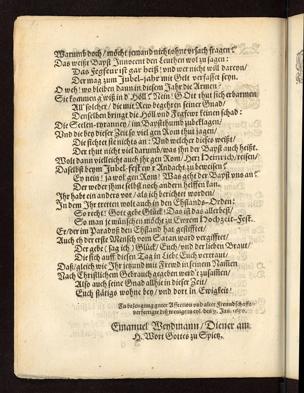 Warumb doch / möcht jemand nicht ohne vrsach fragen?
Das weist Bapst Innocent den Leuthen wol zu sagen:
Das Fegfeur ist gar heiß / und wer nicht will dareyn /
Der mag zum Jubel-jahr mit Gelt verfasset seyn.
O weh! wo bleiben dann in diesem Jahr die Armen /
Sie kommen gwiß in d' Höll? Nein! Gott thut sich erbarmen
All solcher / die mit Rew begehren seiner Gnad /
Denselben bringt die Höll und Fegfeur keinen schad:
Die Seelen-tyranney / im Bapsthumb zubeklagen /
Und die bey dieser Zeit so viel gen Rom thut jagen /
Die fichtet sie nichts an: Und welcher dieses weißt /
Der thut nicht viel darumb / was ihn der Bapst auch heißt.
Wolt dann vielleicht auch ihr gen Rom / Herr Heinrich / reisen /
Daselbst beym Jubel-fest ewr Andacht zu beweisen?
Ey nein! ja wol gen Rom! Was geht der Bapst uns an?
Der weder ihme selbst noch andern helffen kan.
Ihr habt ein anders hier / als ich berichtet worden /
In dem Ihr tretten wolt auch in den Ehstands-Orden:
So recht! Gott gebe Glück! Das ist das allerbest /
So man je wünschen möcht zu Ewrem Hochzeit-Fest.
Er / der im Paradys den Ehstand hat gestifftet /
Auch eh der erste Mensch vom Satan ward vergifftet /
Der gebe (sag ich) Glück! Euch / und der lieben Braut /
Die sich auff diesen Tag in Liebe Euch vertraut
Daß / gleich wie Ihr jetzund mit Frewd in seinem Namen
Nach Christlichem Gebrauch gegeben ward zusammen /
Also auch seine Gnad allhie in dieser Zeit /
Euch stätigs wohne bey / und dort in Ewigkeit!
Zu bezeugung guter Affection und alter Freundschafft
verfertigte diß wenige
Emanuel Weydmann / Diener am
H. Wort Gottes zu Spietz.